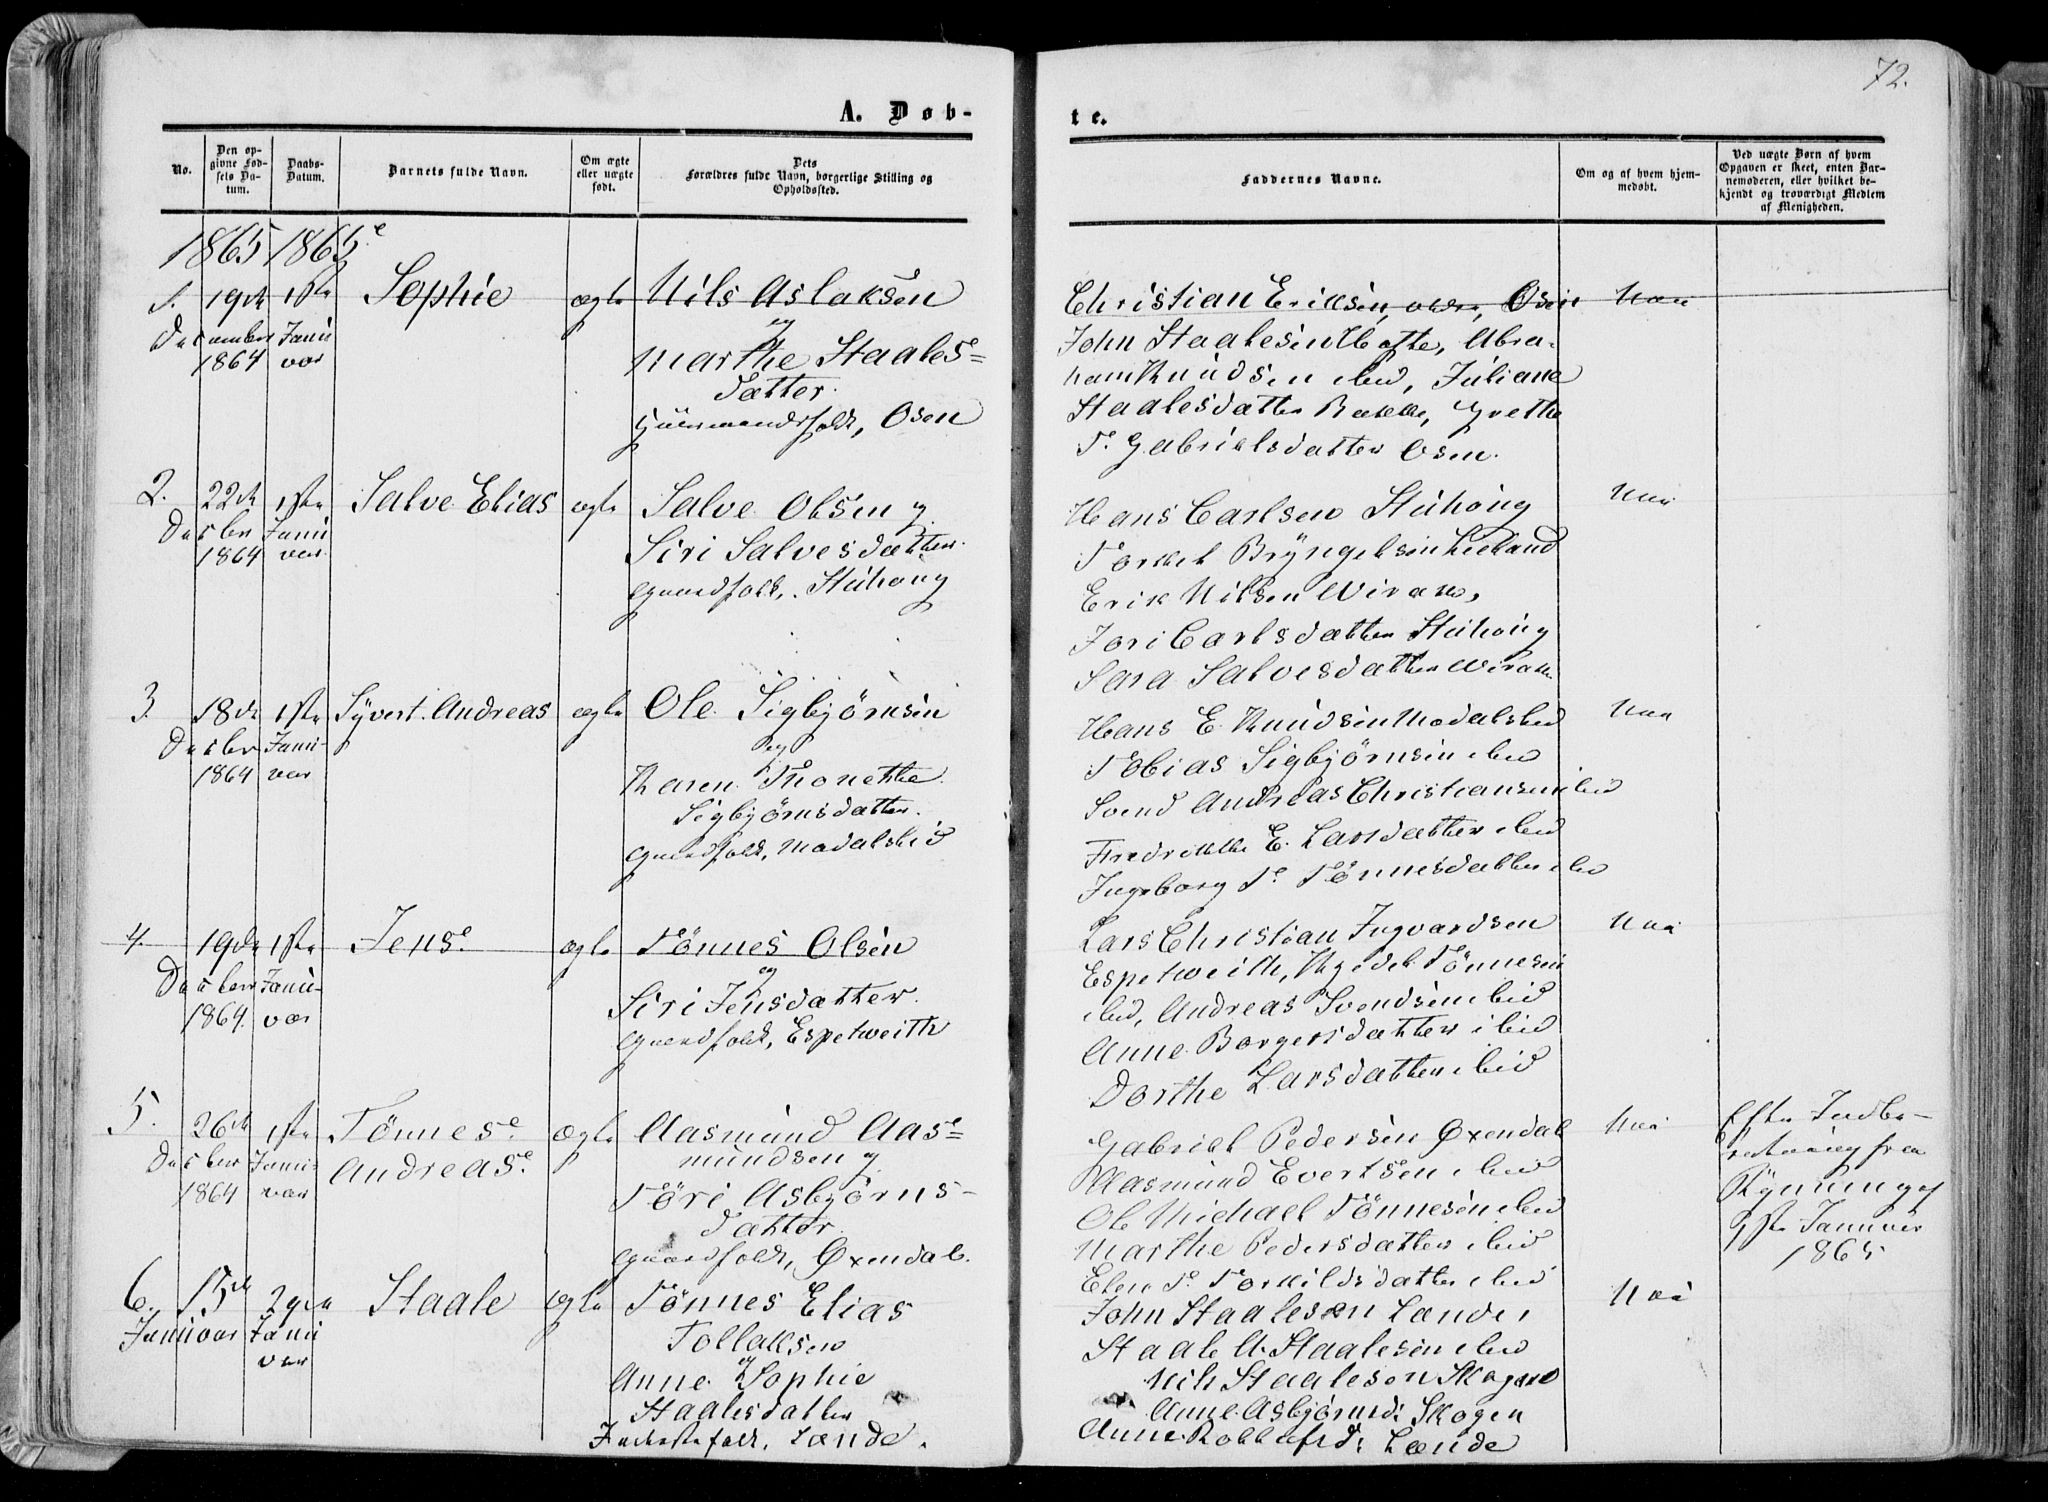 72.
A. Døb-
te.
No.
Den op-
givne Fød-
sels Da-
tum.
Daabs-
Datum.
Barnets fulde Navn.
Om ægte
eller uægte
født.
Dets
Forældres fulde Navn, borgerlige Stilling og
Opholdssted.
Faddernes Navne.
Om og af hvem hjem-
medøbt.
Ved uægte Børn af hvem
Opgaven er skeet, enten Bar-
nemoderen, eller hvilket be-
kjendt og troværdigt Medlem
af Menigheden.
1865 1865
1.
19de
December
1864
1ste
Janu
var
Sophie
ægte
Nils Aslaksen
og
Marthe Staales=
datter
Huusmandsfolk, Osen
Christian Eriksen, Osen
John Staalesen, Abra-
ham Knudsen ibid, Juliane
Staalesdatter Bakke, Grethe
T. Gabrielsdatter Osen.
Nei
2.
22de
Decber
1864
1ste
Janu
var
Salve Elias
ægte
Salve Olsen og
Siri Salvesdatter
Gaardfolk, Stuhoug
Hans Carlsen Stuhoug
Torkel Bryngelsen Lieland
Erik Nilsen Virak,
Jori Carlsdatter Stuhoug
Sara Salvesdatter Virak
Nei
3.
18de
Decber
1864
1ste
Janu-
var
Syvert Andreas
ægte
Ole Sigbjörnsen
og
Karen Thonette
Sigbjörnsdatter
Gaardfolk, Modalsli
Hans E. Knudsen Modalsli
Tobias Sigbjörnsen ibid
Svend Andreas Christiansen ibid
Fredrikke E. Larsdatter ibid
Ingeborg T. Tönnesdatter ibid
Nei
4.
19de
Decber
1864.
1ste
Janu-
var
Jens
ægte
Tönnes Olsen
og
Siri Jensdatter
Gaardfolk, Espetveith
Lars Christian Ingvardsen
Espetveith, Tönnesen
ibid, Andreas Svendsen ibid
Anne Borgersdatter ibid
Dorthe Larsdatter ibid
Nei
5.
26de
Decber
1864
1ste
Janu-
var
Tönnes
Andreas
ægte
Aasmund Aas=
mundsen og
Töri Asbjörns-
datter
Gaardfolk, Øxendal.
Gabriel Pedersen Øxendal
Aasmund Evertsen ibid
Ole Michael Tönnesen ibid
Marthe Pedersdatter ibid
Elen T. Torkildsdatter ibid
Nei
Efter Indbe-
retning fra
1ste Januar
1865
6.
15de
Januar
29de
Janu
var
Staale
ægte
Tönnes Elias
Tollaksen
og
Anne Sophie
Staalesdatter
Inderstfolk, Lande.
John Staalesen Lande,
Staale A. Staalesen ibid
Nils Staalesen Skogen
Anne Asbjörnsd: Skogen
Anne Rolleifsd: Lande
Nei